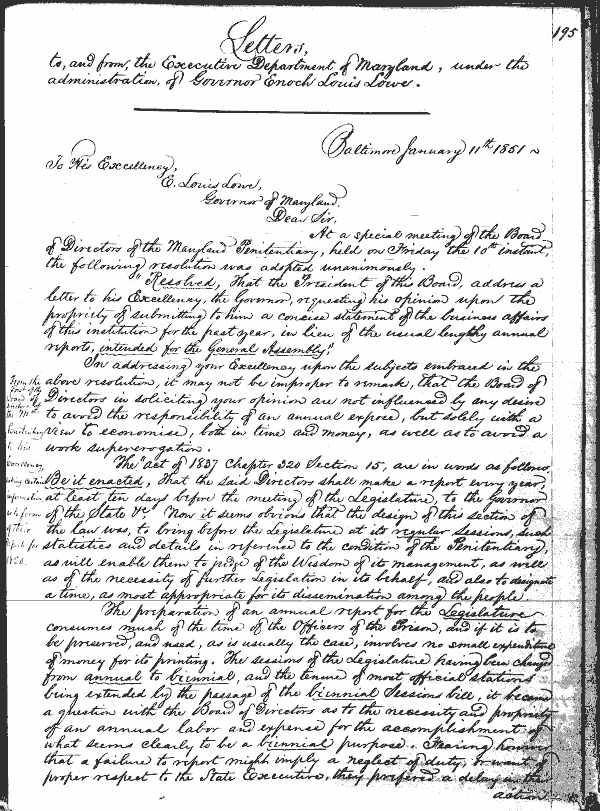 195
Letters,
to, and from, the Executive Department of Maryland, under the
administration, of Governor Enoch Louis Lowe.
Baltimore January 11th 1851
To His Excellency,
E. Louis Lowe,
Governor of Maryland.
Dear Sir,
At a special meeting of the Board
of Directors of the Maryland Penitentiary, held on Friday the 10th instant,
the following resolution was adopted unanimously.
"Resolved, That the President of this Board, address a
letter to his Excellency, the Governor, requesting his opinion upon the
propriety of submitting to him a concise statement of the business affairs
of this institution for the past year, in lieu of the usual lengthy annual
reports, intended for the General Assembly."
In addressing your Excellency upon the subjects embraced in the
above resolution, it may not be improper to remark, that the Board of
Directors in soliciting your opinion are not influenced by any desire
to avoid the responsibility of an annual expose, but solely with a
view to economise, both in time and money, as well as to avoid a
work supererogation.
From the
Board of
Directors of
the Md
Penitentiary
to his
Excellency
information
report for
1850.
The "act of 1837 Chapter 320 Section 15, are in words as follows,
Be it enacted, That the said Directors shall make a report every year,
at least ten days before the meeting of the Legislature, to the Governor
of the State &c" Now it seems obvious that the design of this section of
the law was, to bring before the Legislature at its regular sessions, such
statistics and details in reference to the condition of the Penitentiary,
as will enable them to judge of the Wisdom of its management, as well
as of the necessity of further Legislation in its behalf, and also to designate
a time, as most appropriate for its dissemination among the people.
The preparation of an annual report for the Legislature
consumes much of the time of the Officers of the Prison, and if it is to
be preserved, and used, as is usually the case, involves no small expenditure
of money for its printing. The sessions of the Legislature having been changed
from annual to biennial, and the tenure of most official stations
being extended by the passage of the biennial Sessions bill, it became
a question with the Board of Directors as to the necessity and propriety
of an annual labor and expense for the accomplishment of
what seems clearly to be a biennial purpose. Fearing however
that a failure to report might imply a neglect of duty, or want of
proper respect to the State Executive, they preferred a delay in their
action